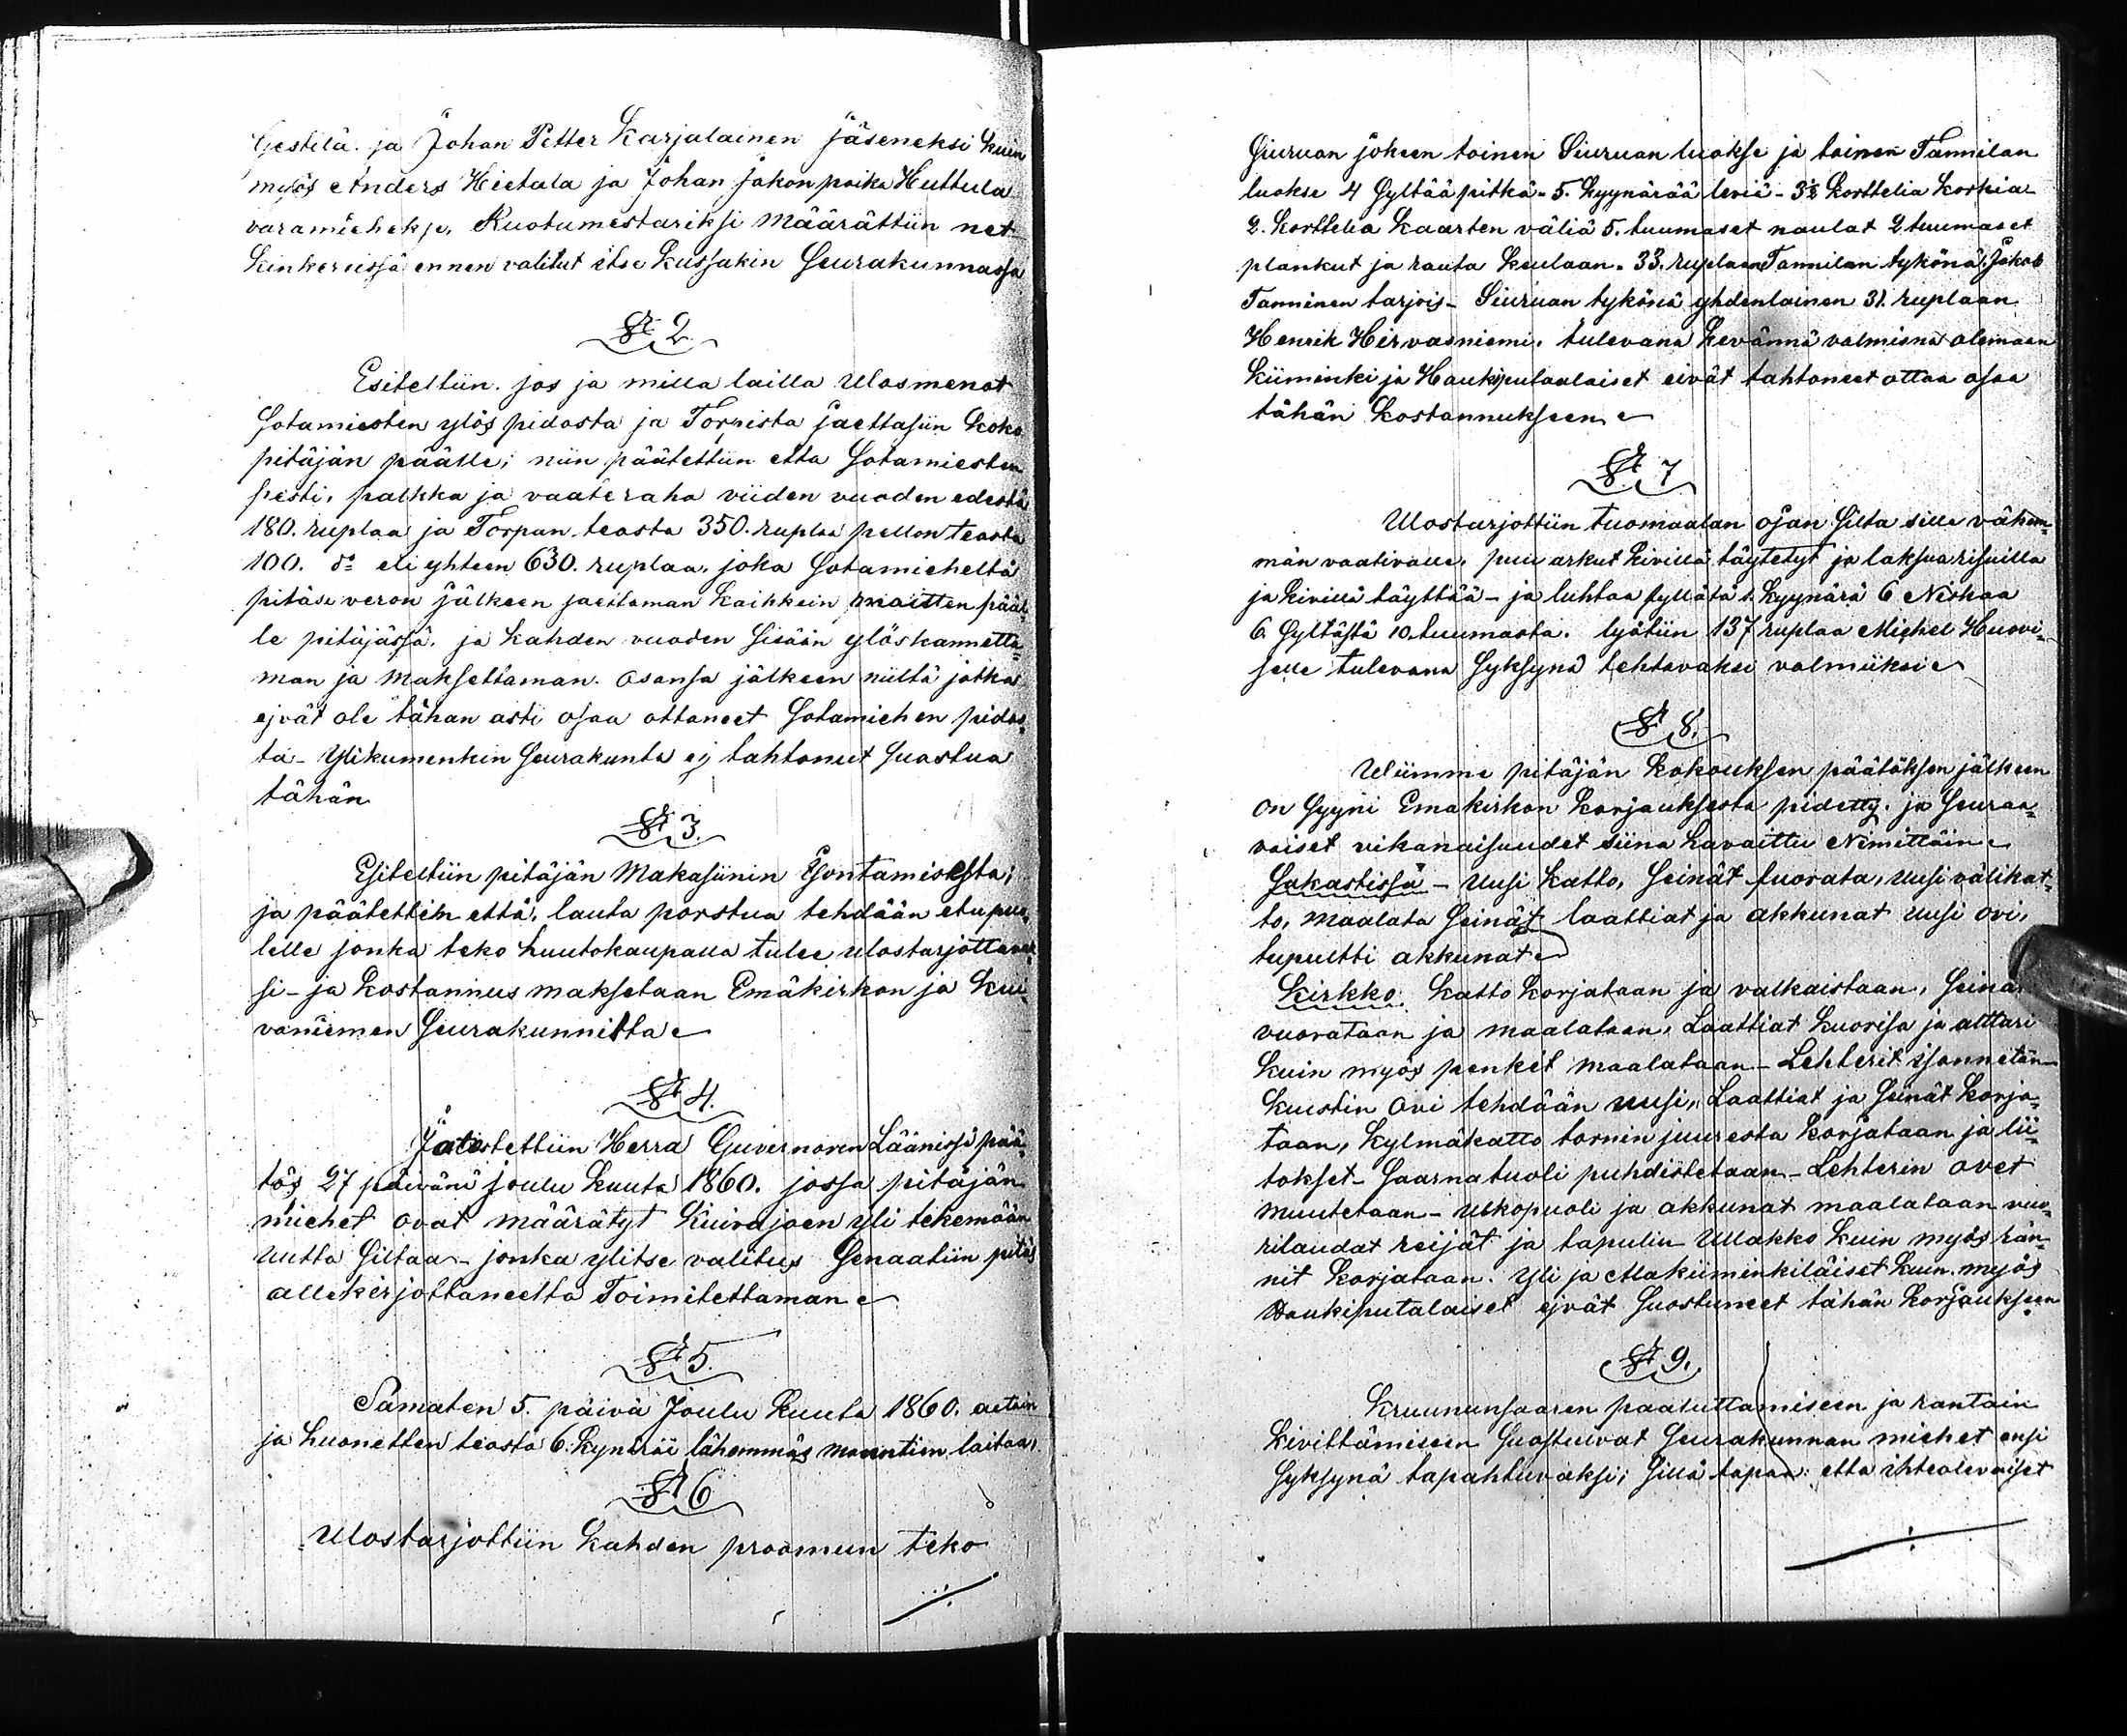 Gestilä. ja Johan Petter Karjalainen Jäseneksi Kuin
myös Anders Hietala ja Johan Jakonpoika Huttula
varamieheksi. Ruotumestariksi Määrättiin net
Kinkereissä ennen valitut itse Kussakin Seurakunnassa
§ 2.
Esiteltiin. jos ja milla lailla Ulosmenot
Sotamiesten ylös pidosta ja Torpista Jaettasiin Koko
pitäjän päälle; niin päätettiin etta Sotamiesten
pesti, palkka ja vaateraha viiden vuoden edestä
180. ruplaa ja Torpan teosta 350. ruplaa pellon teosta
100. d:o eli yhteen 630. ruplaa. joka Sotamieheltä
pitäsi veron jälkeen jaettaman Kaikkein maitten pääl-
le pitäjässä. ja Kahden vuoden Sisään ylöskannetta-
man ja Maksettaman. Osansa jälkeen niiltä jotka
ejvät ole tähan asti osaa ottaneet Sotamiehen pidos-
ta - Ylikiimenkin Seurakunta ej tahtonut Suostua
tähän
§ 3.
Esiteltiin pitäjän Makasiinin Isontamisesta;
ja päätettiin että, lauta porstua tehdään etupuo-
lelle jonka teko huutokaupalla tulee ulostarjottavak-
si - ja Kostannus maksetaan Emäkirkon ja Kui-
vaniemen Seurakunnilta
§ 4.
Jatestettiin Herra Guvernören Läänissä pää-
tös 27 päivänä Joulu Kuuta 1860. jossa pitäjän
miehet ovat määrätyt Kuivajoen yli tekemään
Uutta Siltaa - jonka ylitse valitus Senaatiin pitäs
allekirjottaneelta Toimitettaman
§ 5.
Samaten 5. päivä Joulu Kuuta 1860. aetain
ja huonetten teosta 6. Kynärää lähemmäs maantien laitaa.
§ 6
Ulostarjottiin Kahden praamun teko
Siuruan jokeen toinen Siuruan luokse ja toinen Tannilan
luokse 4 Syltää pitkä - 5. Kyynärää leviä - 3½ Korttelia Korkia
2. Korttelia Kaarten väliä 5. tuumaset naulat 2 tuumaset
plankut ja rauta Keulaan. 33. ruplaan Tannilan tykönä. Jakob
Tanninen tarjois - Siuruan tykönä yhdenlainen 31. ruplaan
Henrik Hirvasniemi. tulevana Kevännä valmisna olemaan
Kiiminki ja Haukiputaalaiset eivät tahtoneet ottaa osaa
tähän Kostannukseen
§ 7
Ulostarjottiin Tuomaalan ojan Silta sille vähem-
män vaativalle. puu arkut Kivillä täytetyt ja laksua risuilla
ja Kivillä täyttää - ja luhtaa syllätä 1. Kyynärä 6 Niskaa
6. Syltästä 10. tuumasta. lyötiin 137 ruplaa Michel Huovi-
selle tulevana Syksynä tehtaväksi valmiiksi
§ 8.
Wiimme pitäjän Kokouksen päätöksen jälkeen
on Syyni Emakirkon Korjauksesta pidetty. ja Seuraa-
vaiset vikanaisuudet siina havaittu Nimittäin
Sakastissa - Uusi Katto, Seinät fuorata, Uusi välikat-
to, maalata Seinät laattiat ja akkunat Uusi ovi,
tupultti akkunat
Kirkko: Katto Korjataan ja valkaistaan, Seinät
vuorataan ja maalataan, Laattiat Kuorissa ja alttari
Kuin myös penkit maalataan - Lehterit isonnetän
Kuistin Ovi tehdään uusi, Laattiat ja Seinät Korja-
taan, Kylmäkatto tornin juuresta Korjataan ja lii-
tokset - Saarnatuoli puhdistetaan - Lehterin ovet
muutetaan - Ulkopuoli ja akkunat maalataan vuo-
rilaudat reijät ja tapulin Ullakko Kuin myös rän-
nit Korjataan. Yli ja Alakiiminkiläiset Kuin. myös
Haukiputalaiset ejvät Suostuneet tähän Korjaukseen
§ 9.
Kruununsaaren paaluttamiseen ja rantain
Kivittämiseen Suostuivat Seurakunnan miehet ensi
Syksynä tapahtuvaksi; Sillä tapaa: etta ihteolevaiset